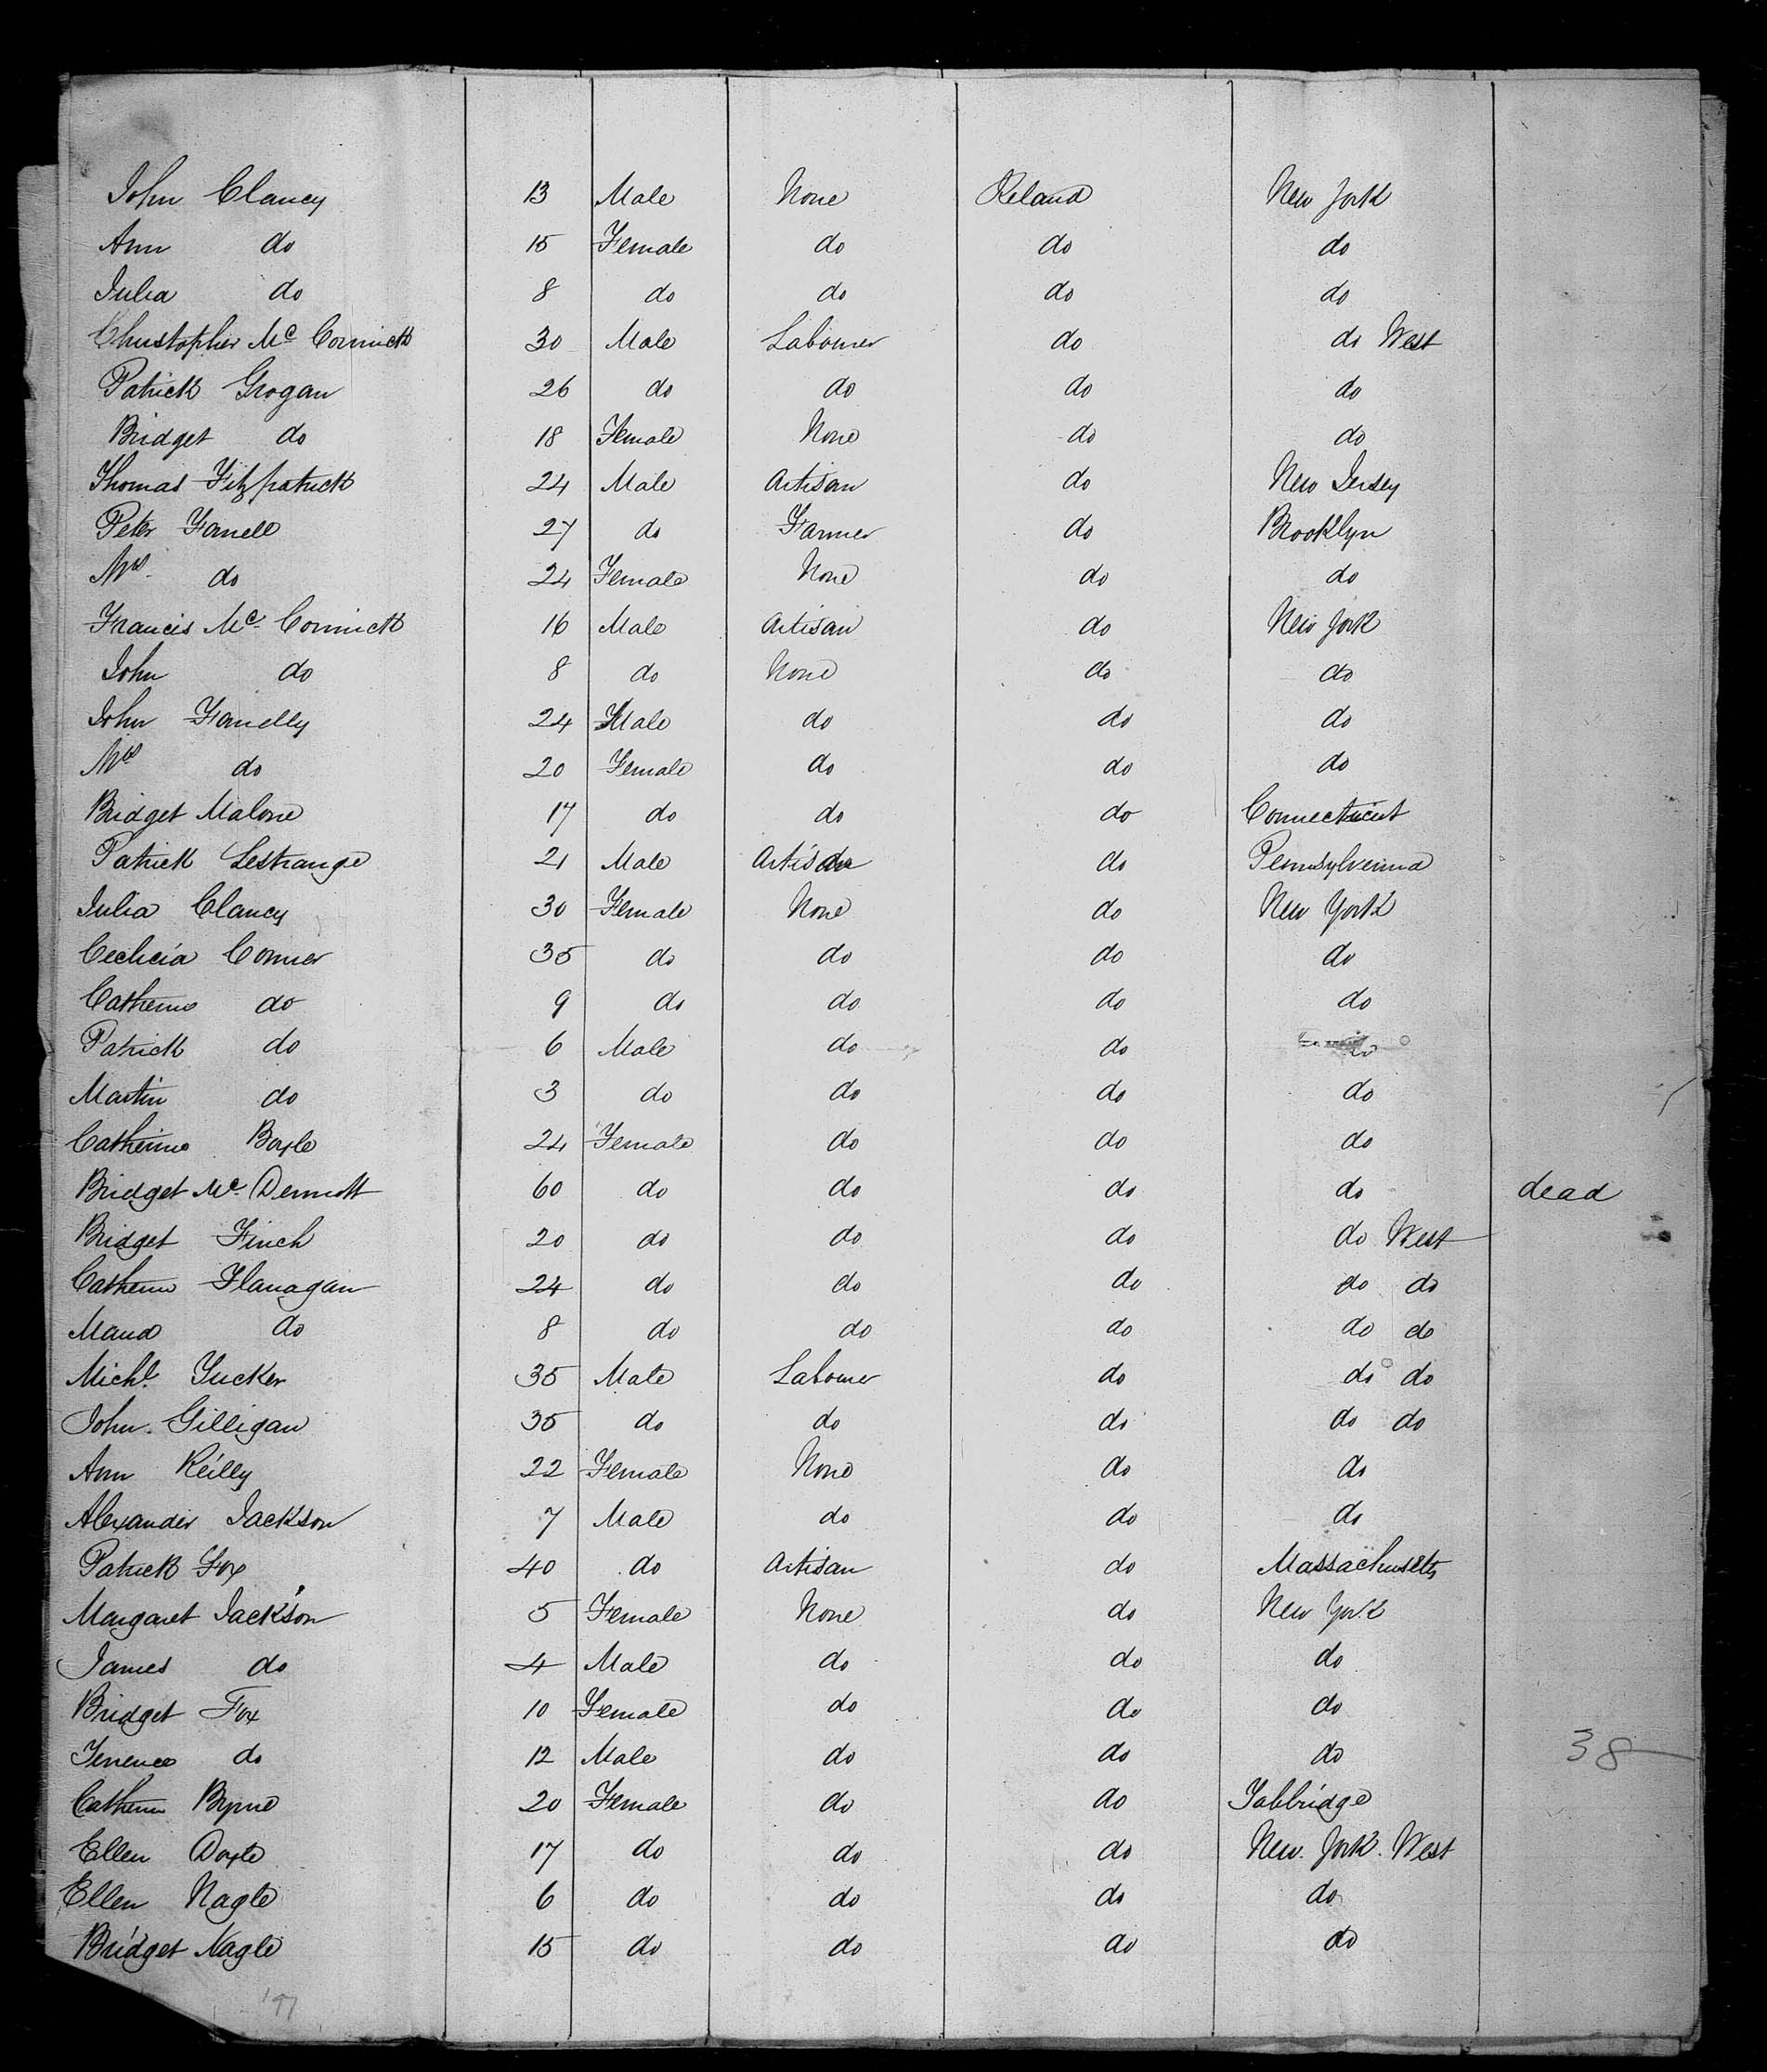 John Clancy 13 Male None Ireland New York
Ann do 15 Female do do do
Julia do 8 do do do do
Christopher Mc Cormick 30 Male Labourer do do West
Patrick Grogan 26 do do do do
Bridget do 18 Female None do do
Thomas Fitzpatrick 24 Male Artisan do New Jersey
Peter Farrell 27 do Farmer do Brooklyn
Mrs do 24 Female None do do
Francis Mc Cormick 16 Male Artisan do New York
John do 8 do None do do
John Farrelly 24 Male do do do
Mrs do 20 Female do do do
Bridget Malone 17 do do do Connecticut
Patrick Lestrange 21 Male Artisan do Pennsylvenina
Julia Clancy 30 Female None do New York
Cecilicia Conner 35 do do do do
Catherine do 9 do do do do
Patrick do 6 Male do do do
Martin do 3 do do do do
Catherine Boyle 24 Female do do do
Bridget Mc Dermott 60 do do do do dead
Bridget Finch 20 do do do do West
Catherine Flanagan 24 do do do do do
Maria do 8 do do do do do
Michl. Tucker 35 Male Labourer do do do
John Gilligan 35 do do do do do
Ann Reilly 22 Female None do do
Alexander Jackson 7 Male do do do
Patrick Fox 40 do Artisan do Massachusetts
Margaret Jackson 5 Female None do New York
James do 4 Male do do do
Bridget Fox 10 Female do do do
Terence do 12 Male do do do
38
Catherine Byrne 20 Female do do Tabbridge
Ellen Doyle 17 do do do New York West
Ellen Nagle 6 do do do do
Bridget Nagle 15 do do do do